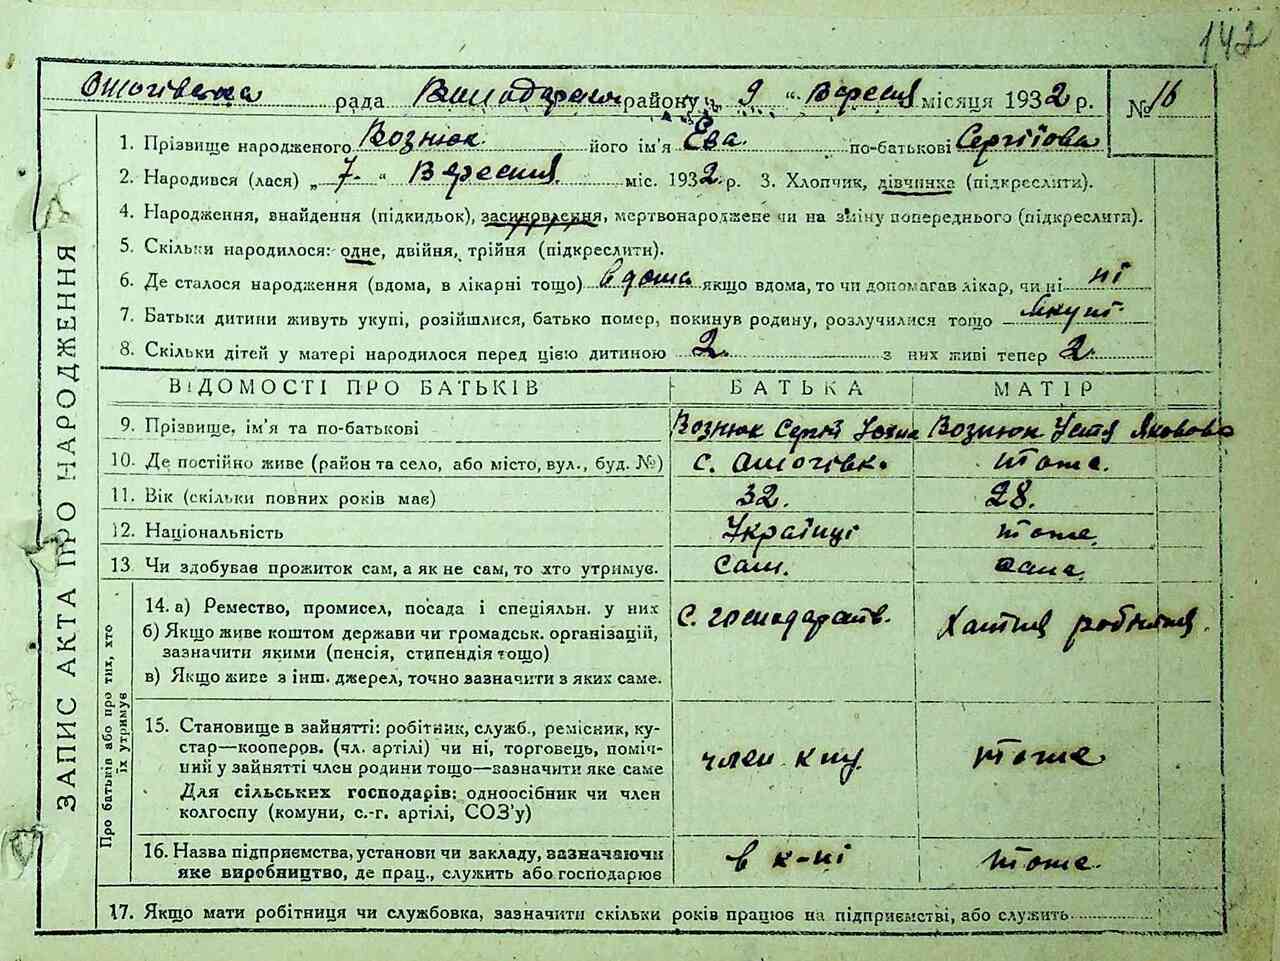 142
рада району „ 9 “ Вересня місяця 1932 р. № 16
ЗАПИС АКТА ПРО НАРОДЖЕННЯ
1. Прізвище народженого Вознюк його ім'я Ева по-батькові Сергіїова
2. Народився (лася) „ 7. “ Вересня міс. 1932 р. 3. Хлопчик, дівчинка (підкреслити).
4. Народження, внайдення (підкидьок), засиновлення, мертвонароджене чи на зміну попереднього (підкреслити).
5. Скільки народилося: одне, двійня, трійня (підкреслити).
6. Де сталося народження (вдома, в лікарні тощо) вдома якщо вдома, то чи допомагав лікар, чи ні ні
7. Батьки дитини живуть укупі, розійшлися, батько помер, покинув родину, розлучилися тощо
8. Скільки дітей у матері народилося перед цією дитиною 2. з них живі тепер 2.
ВІДОМОСТІ ПРО БАТЬКІВ БАТЬКА МАТІР
9. Прізвище, ім'я та по-батькові Вознюк Сергій Вознюк Устя Яковова
10. Де постійно живе (район та село, або місто, вул., буд. №) с. тоже.
11. Вік (скільки повних років має) 32. 28.
12. Національність Українці тоже.
13. Чи здобував прожиток сам, а як не сам, то хто утримує. сам. сама.
Про батьків або про тих, хто їх утримує
14. а) Ремество, промисел, посада і спеціяльн. у них с. господарств. Хатня робітня.
б) Якщо живе коштом держави чи громадськ. організацій,
зазначити якими (пенсія, стипендія тощо)
в) Якщо живе з інш. джерел, точно зазначити з яких саме.
15. Становище в зайнятті: робітник, служб., ремісник, ку-
стар—кооперв. (чл. артілі) чи ні, торговець, поміч-
ний у зайнятті член родини тощо—зазначити яке саме член тоже
Для сільських господарів: одноосібник чи член
колгоспу (комуни, с.-г. артілі, СОЗ'у)
16. Назва підприємства, установи чи закладу, зазначаючи в к-пі тоже.
яке виробництво, де прац., служить або господарює
17. Якщо мати робітниця чи службовка, зазначити скільки років працює на підприємстві, або служить